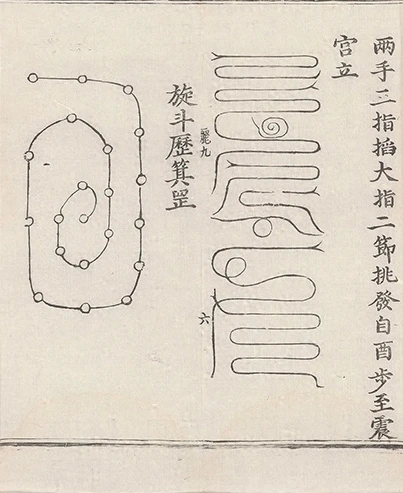 两手三指搯大指二節挑發自酉步至震
宫立
九
六
旋斗歷箕罡